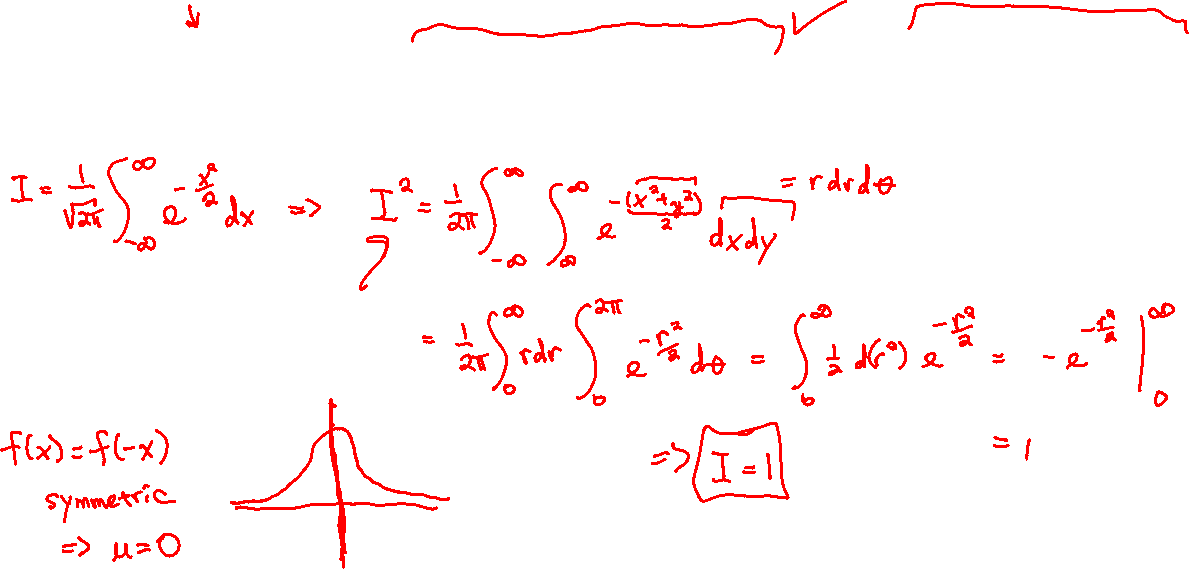 I = 1/√2π ∫_{-∞}^{∞} e^{-x²/2} dx => I² = 1/2π ∫_{-∞}^{∞} ∫_{∞}^{∞} e^{-(x²+y²)/2} dxdy = r dr dθ
= 1/2π ∫_{0}^{∞} r dr ∫_{0}^{2π} e^{-r²/2} dθ = ∫_{0}^{∞} 1/2 d(r²) e^{-r²/2} = -e^{-r²/2} |_{0}^{∞}
=> I = 1 = 1
f(x) = f(-x)
symmetric
=> μ = 0